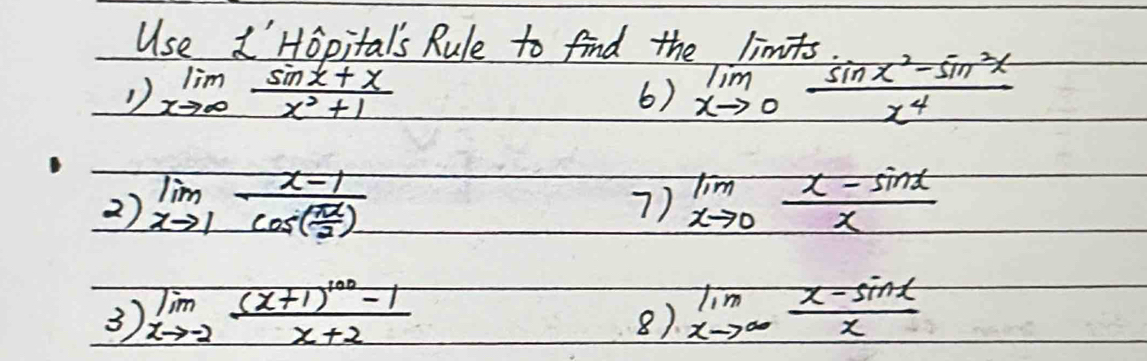 Use L'Hôpital's Rule to find the limits.
1) lim x→∞ (sin x + x)/(x² + 1)
6) lim x→0 (sin x² - sin²x)/x⁴
2) lim x→1 (x - 1)/cos(πx/2)
7) lim x→0 (x - sin x)/x
3) lim x→-2 ((x+1)¹⁰⁰ - 1)/(x + 2)
8) lim x→∞ (x - sin x)/x